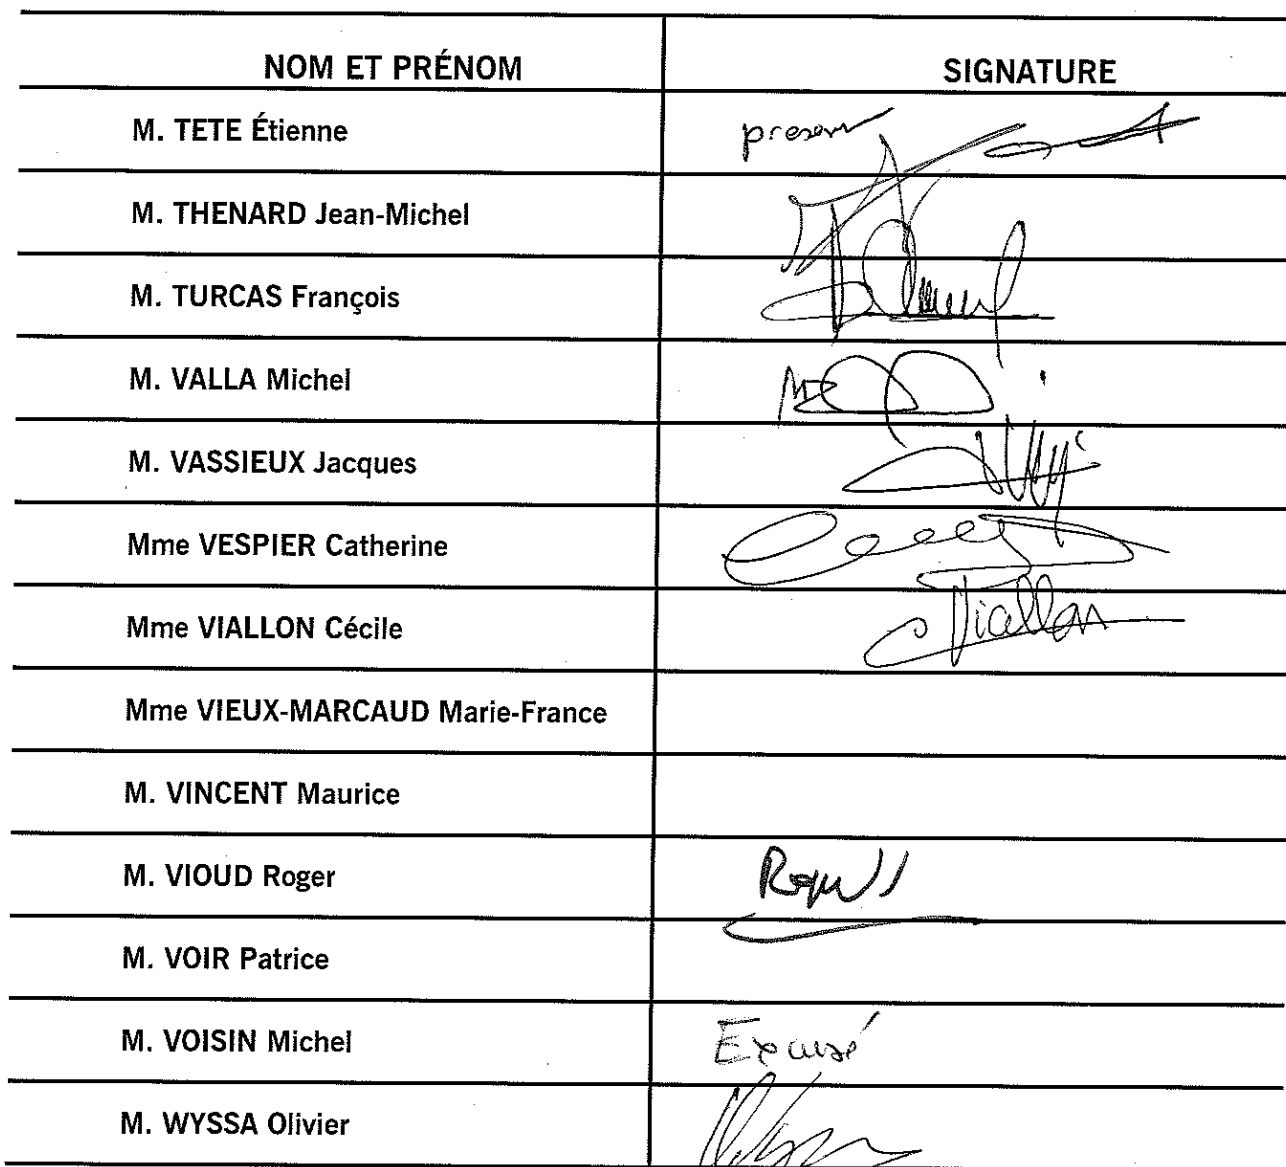 NOM ET PRÉNOM SIGNATURE
M. TETE Étienne present
M. THENARD Jean-Michel
M. TURCAS François
M. VALLA Michel
M. VASSIEUX Jacques
Mme VESPIER Catherine
Mme VIALLON Cécile Viallon
Mme VIEUX-MARCAUD Marie-France
M. VINCENT Maurice
M. VIOUD Roger
M. VOIR Patrice
M. VOISIN Michel Excusé
M. WYSSA Olivier